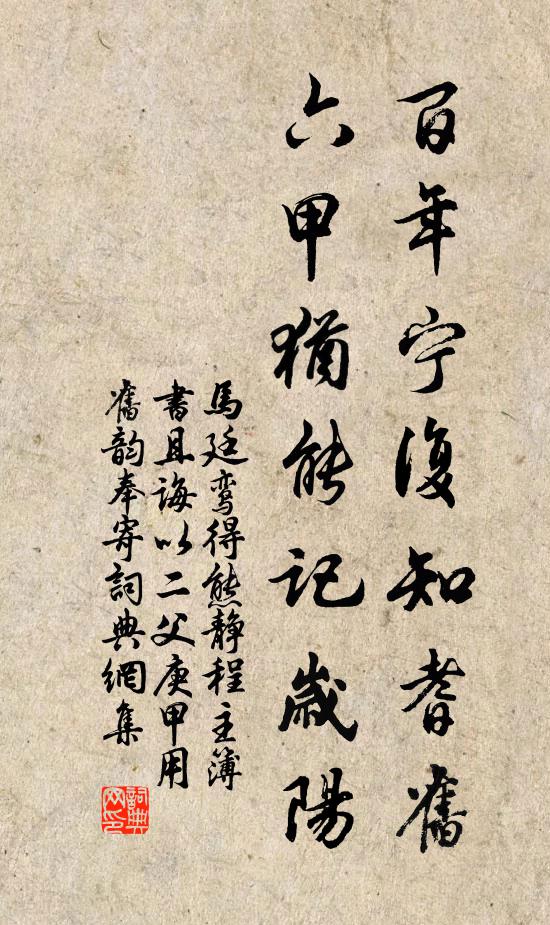 百年宁復知耆舊
六甲猶能記歲陽
馬廷鸾得熊静程主簿
書且誨以二父庚甲用
舊韵奉寄詞典網集
詞典
网印